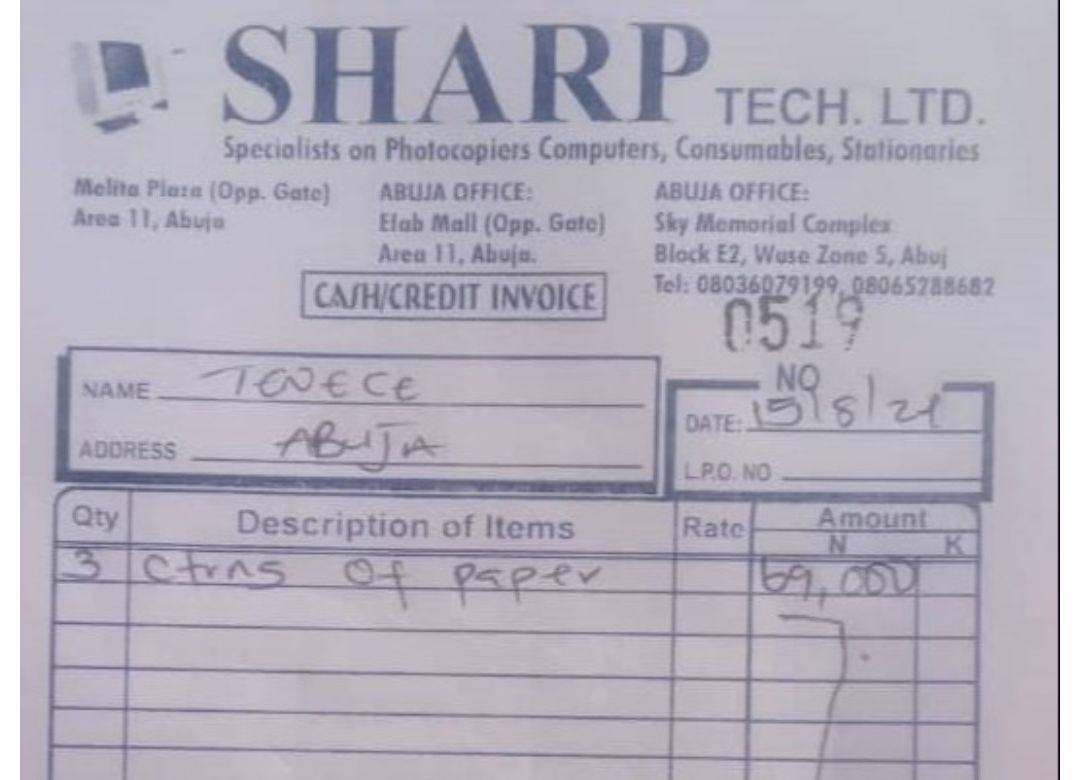 SHARP TECH. LTD.
Specialists on Photocopiers Computers, Consumables, Stationaries
Melita Plaza (Opp. Gate)
Area 11, Abuja
ABUJA OFFICE:
Efab Mall (Opp. Gate)
Area 11, Abuja.
ABUJA OFFICE:
Sky Memorial Complex
Block E2, Wuse Zone 5, Abuj
Tel: 08036079199, 08065288682
CASH/CREDIT INVOICE
0519
NO
NAME TENECE
ADDRESS ABUJA
DATE: 15/8/21
L.P.O. NO
Qty Description of Items Rate Amount
N K
3 Ctrns Of paper 69,000